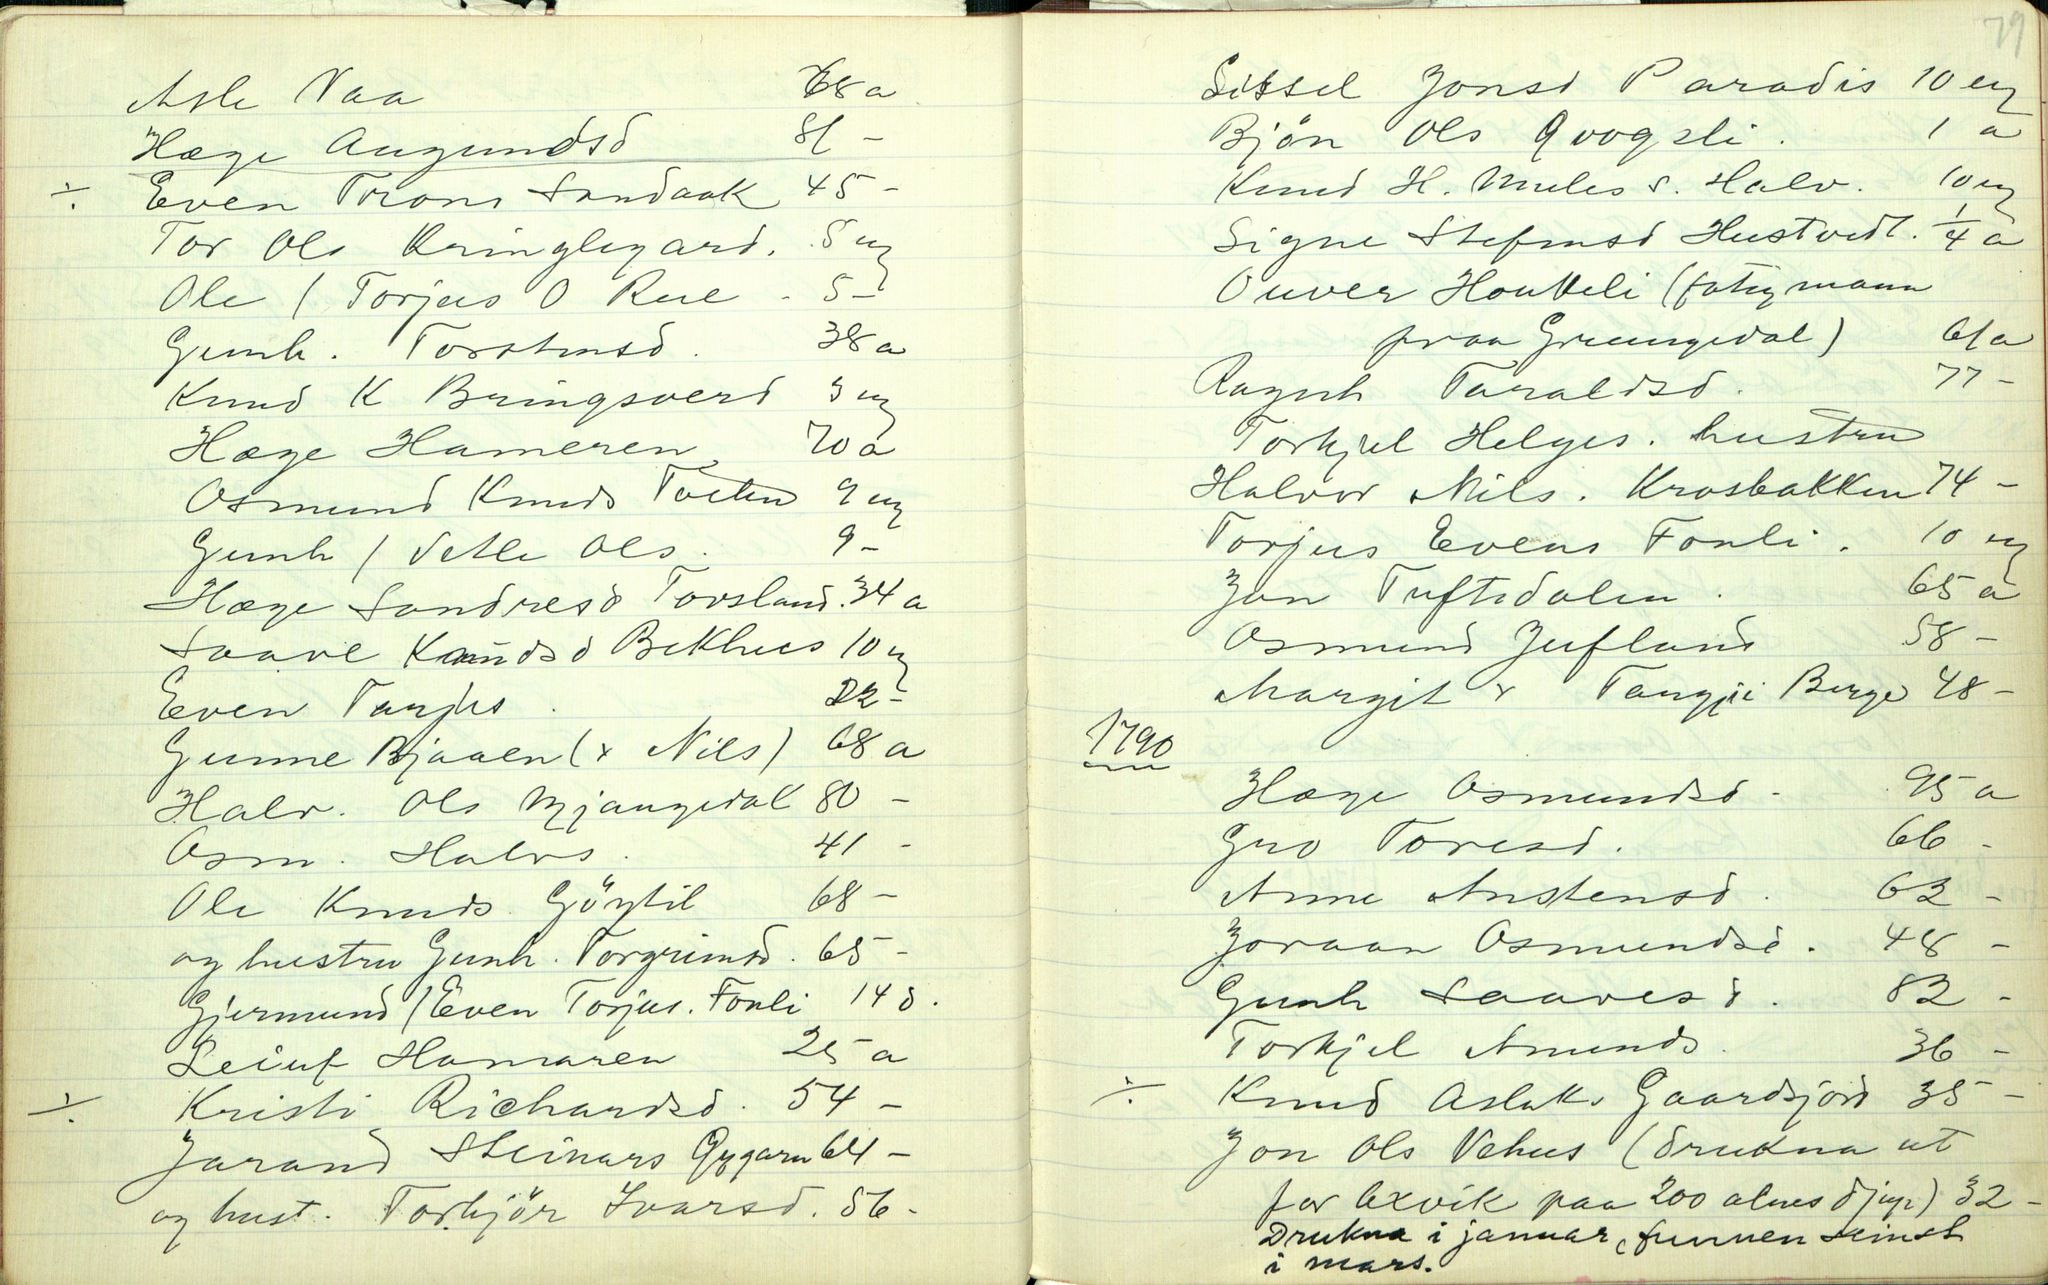 Asle Naa 68 a
Hæge Augundsd 81 -
÷ Even Trons Sandaak 45 -
Tor Ols Kringlegard. 5 ug
Ole / Torjus O Rue - 5 -
Gunh. Torstensd. 38 a
Knud K Bringsverd 3 ug
Hæge Hameren 70 a
Osmund Knuds 9 ug
Gunh / Vetle Ols. 9 -
Hæge Sondresd Torsland. 34 a
Saave Knudsd Bekhus 10 ug
Even Tarjus. 22 -
Gunne Bjaaen (x Nils) 68 a
Halv. Ols Mjaugedal 80 -
Osm. Halvs. 41 -
Ole Knuds Göytil 68 -
og hustru Gunh. Torgrimsd. 65 -
Gjermund / Even Torjus. Fonli 14 d.
Leiuf Hamaren 25 a
÷ Kristi Richardsd. 54 -
Jarand Steinars Gygarn 64 -
og hust. Torbjör Ivarsd. 56 -
79
Sissel Jonsd Paradis 10 ug
Bjön Ols Qvogsli. 1 a
Knud H. Mules s. Halv. 10 ug
Signe Stefensd Hustvedt. 1/4 a
Ouver Houkeli (fatigmann
fraa Grungedal) 61 a
Ragnh Taraldsd. 77 -
Torkjel Helges. hustru
Halvor Nils. Krosbakken 74 -
Torjus Evens Fonli. 10 ug
Jon Tuftedalen. 65 a
Osmund Jufland 58 -
Margit x Tangji Berge 48 -
1790
Hæge Osmundsd - 95 a
Gro Toresd. 66 -
Anne Anstensd. 62 -
Joraan Osmundsd. 48 -
Gunh Saavesd. 82 -
Torkjel Amunds. 36 -
÷ Knud Aslaks Gaardsjord 35 -
Jon Ols Vehus (drukna ut
for Oxvik paa 200 alnes djup) 32 -
Drukna i januar, funnen seinst
i mars.